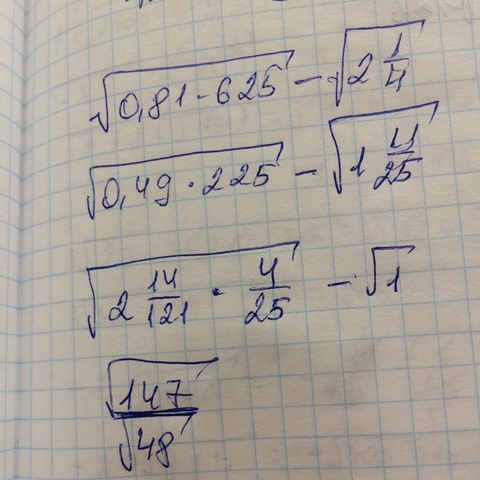 √0,81·625 − √2 1/4
√0,49·225 − √1 11/25
√2 14/121 · 4/25 − √1
√147/√48